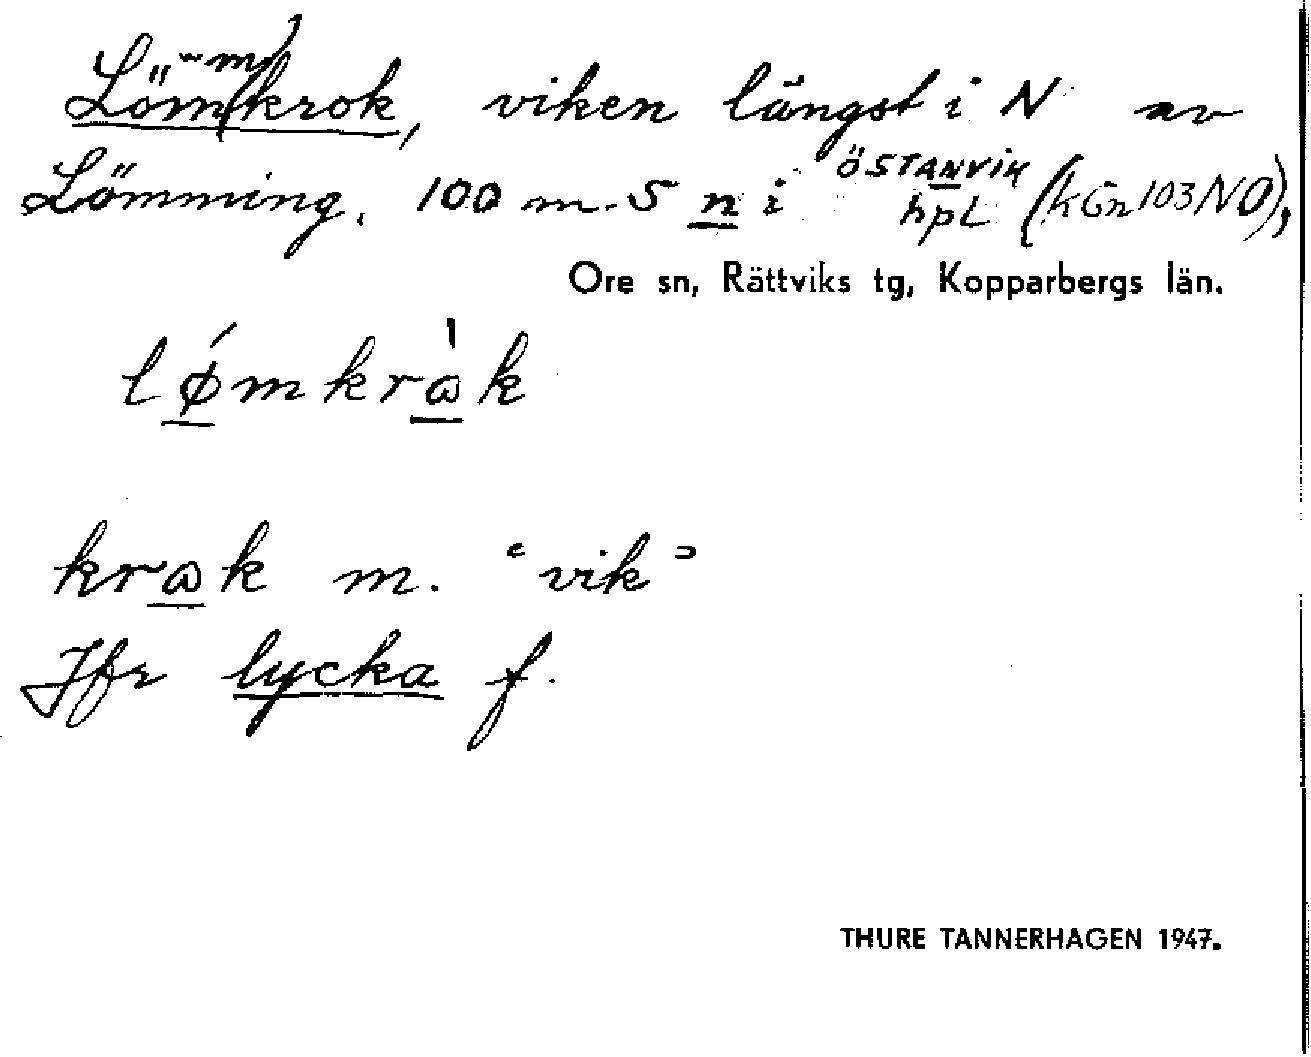 Löm(m)krok, viken längst i N av
Lömming. 100 m. S n i ÖSTANVIK hpl (kGn 103 NO),
Ore sn, Rättviks tg, Kopparbergs län.
lǿmkrὰk
krɷk m. "vik"
Jfr lycka f.
THURE TANNERHAGEN 1947.